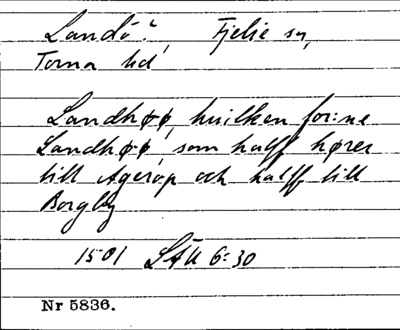 Landö? Fjelie sn,
Torna hd
Landhøø, huilken for:ne
Landhøø, som halff hører
till Agerop och halff till
Borgby
1501 LÄU 6:30
Nr 5836.